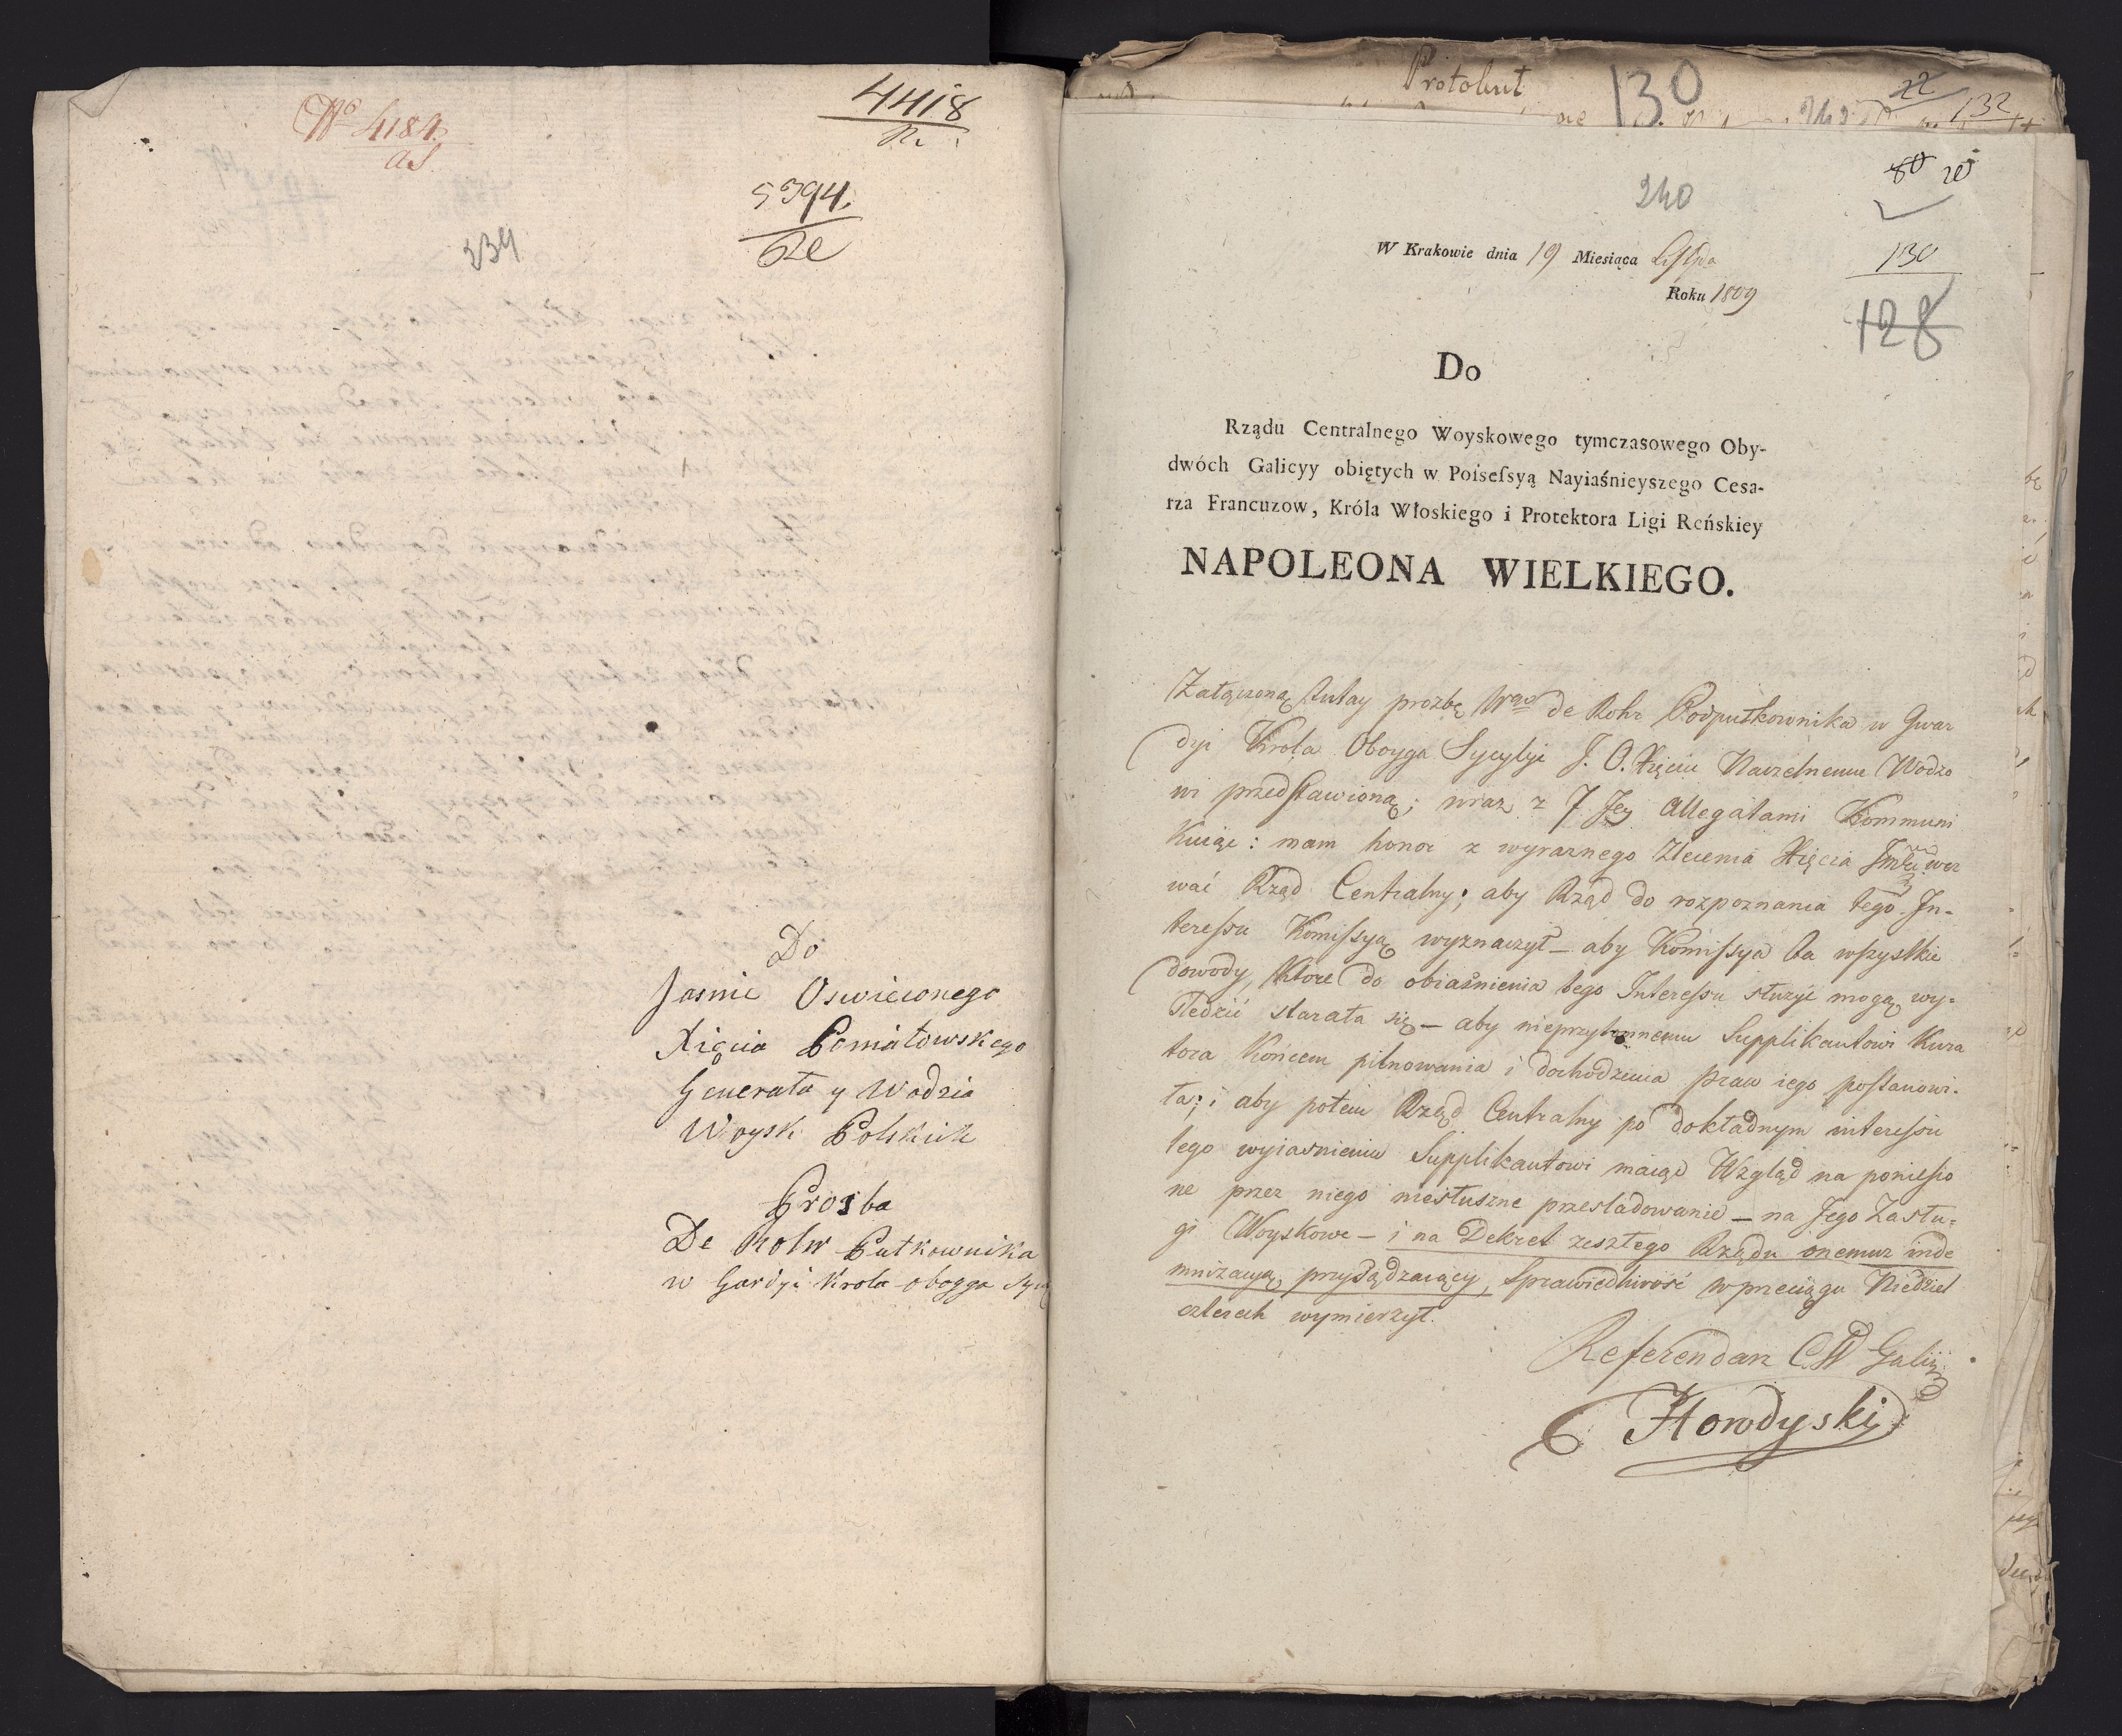 No 4184
4418
N.
5394.
239
Do
Jasnie Oswieconego
Xięcia Poniatowskego
Generała y Wodzia
Woysk Polskich
Prosba
De Rohr Pułkownika
w Gardyi Krola oboyga Syc
Protokuł
130
22
132
80 20
240
W Krakowie dnia 19 Miesiąca Listpa
Roku 1809
130
128
Do
Rządu Centralnego Woyskowego tymczasowego Oby-
dwóch Galicyy obiętych w Poisefsyą Nayiaśnieyszego Cesa-
rza Francuzow, Króla Włoskiego i Protektora Ligi Reńskiey
NAPOLEONA WIELKIEGO.
Załączoną tutay prozbę Wgo de Rohr Podpułkownika w Gwar
dyi Krola Oboyga Sycylyi J. O. Xięciu Naczelnemu Wodzo
wi przedstawioną; wraz z 7 Jey Allegatami Kommuni
kuiąc: mam honor z wyraznego Zlecenia Xięcia Jmci wez
wać Rząd Centralny; aby Rząd do rozpoznania tego In-
terefsu Komifsyą wyznaczył – aby Komifsya ta wszystkie
dowody, ktore do obiaśnienia tego Interefsu służyć mogą wy-
śledzić starała się – aby nieprzytomnemu Supplikantowi Kura
tora Końcem pilnowania i dochodzenia praw iego postanowi-
ła; i aby potem Rząd Centralny po dokładnym interefsu
tego wyiasnieniu Supplikantowi maiąc Wzgląd na poniesio
ne przez niego niesłuszne przesladowanie – na Jego Zasłu-
gi Woyskowe – i na Dekret zeszłego Rządu onemuz inde
mnizacyą przysądzaiący, Sprawiedliwość w przeciągu Niedziel
czterech wymierzył.
Referendarz C W Galicyi
Horodyski